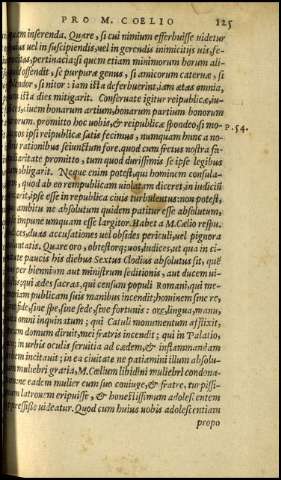 PRO M. COELIO 125
quem inserenda. Quare, si cui nimium efferbuisse uidetur
uel in suscipiendis, uel in gerendis inimicitijs uis, fe-
pertinacia: si quem etiam minimorum horum ali-
offendit, si purpuræ genus, si amicorum cateruæ, si
si nitor: iam ista deferbuerint, iam ætas omnia,
ista dies mitigarit. Conseruate igitur reipublicæ, iu-
ciuem bonarum artium, bonarum partium bonorum
uirorum. promitto hoc uobis, & reipublicæ spondeo, si mo-
nos ipsi reipublicæ satis fecimus, numquam hunc a no- P. 54.
rationibus seiunctum fore. quod cum fretus nostra fa-
miliaritate promitto, tum quod durissimis se ipse legibus
obligarit. Neque enim potest, qui hominem consula-
rem, quod ab eo rempublicam uiolatam diceret, in iudiciũ
ipse esse in republica ciuis turbulentus: non potest,
qui ambitu ne absolutum quidem patitur esse absolutum,
impune umquam esse largitor. Habet a M. Cælio respu.
duas accusationes uel obsides periculi, uel pignora
uoluntatis. Quare oro, obtestorq; uos, iudices, ut qua in ci-
uitate paucis his diebus Sextus Clodius absolutus sit, quẽ
per biennium aut ministrum seditionis, aut ducem ui-
qui ædes sacras, qui censum populi Romani, qui me-
moriam publicam suis manibus incendit, hominem sine re,
sine fide, sine spe, sine sede, sine fortunis: ore, lingua, manu,
omni inquinatum; qui Catuli monumentum afflixit,
meam domum diruit, mei fratris incendit; qui in Palatio,
in urbis oculis seruitia ad cædem, & inflammandam
urbem incitauit; in ea ciuitate ne patiamini illum absolu-
tum muliebri gratia, M. Cælium libidini muliebri condona-
tum: ne eadem mulier cum suo coniuge, & fratre, turpissi-
mum latronem eripuisse, & honestissimum adolescentem
oppressisse uideatur. Quod cum huius uobis adolescentiam
propo